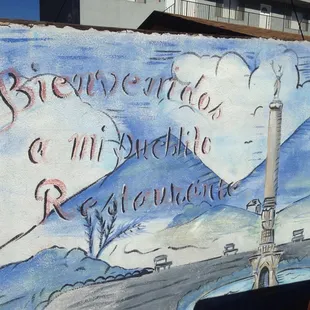 Bienvenidos
a mi pueblito
Restaurante